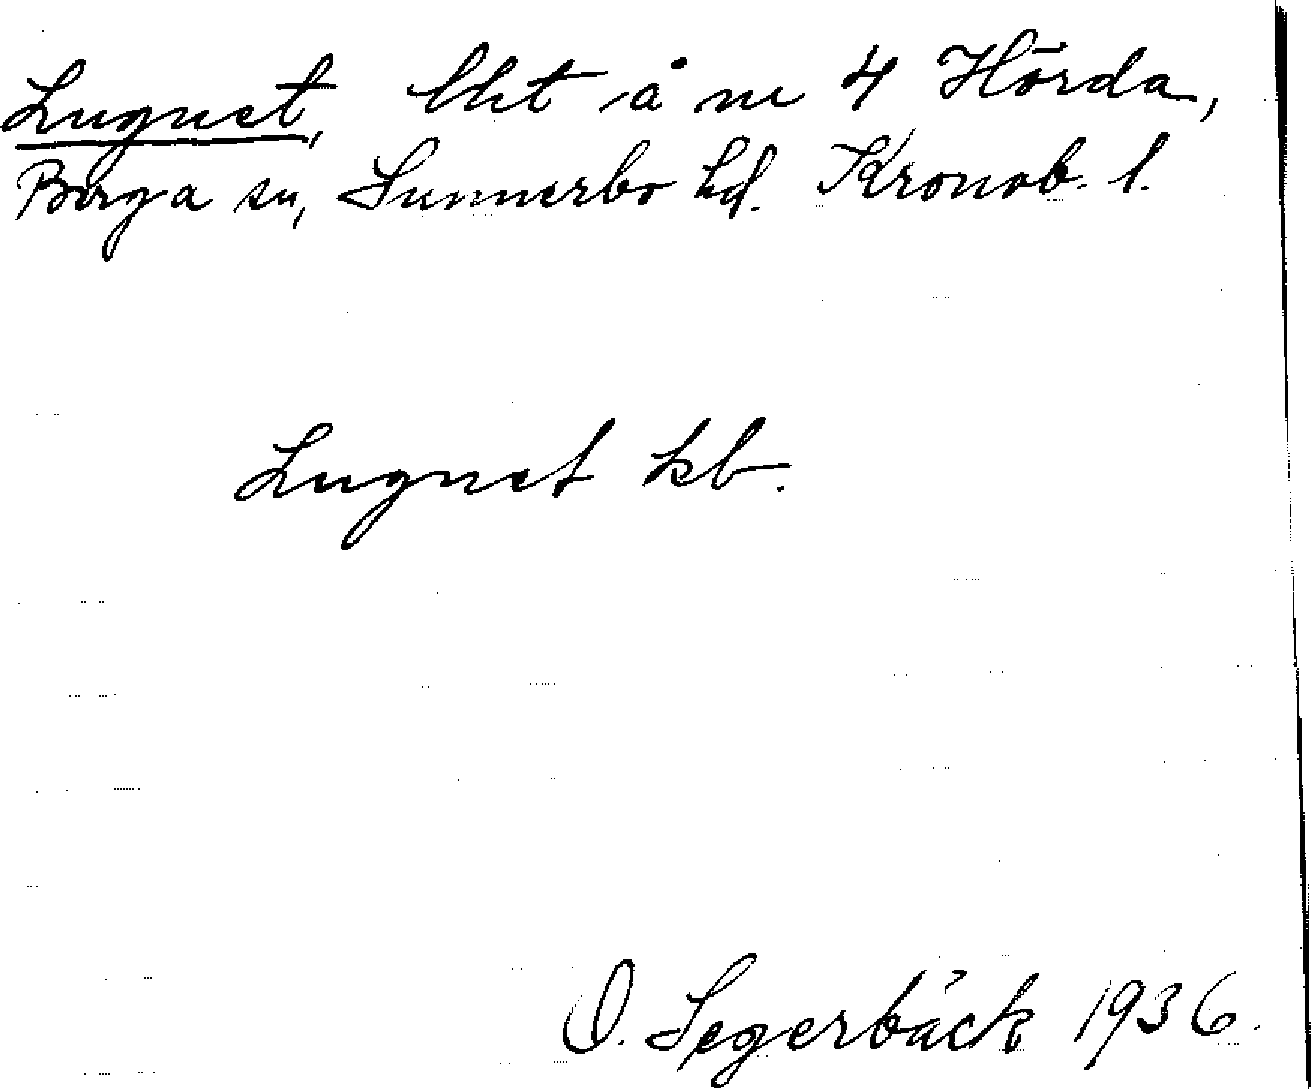 Lugnet, lht å nr 4 Hörda,
Berga sn, Sunnerbo hd. Kronob. l.
Lugnet kb.
O. Segerbäck 1936.